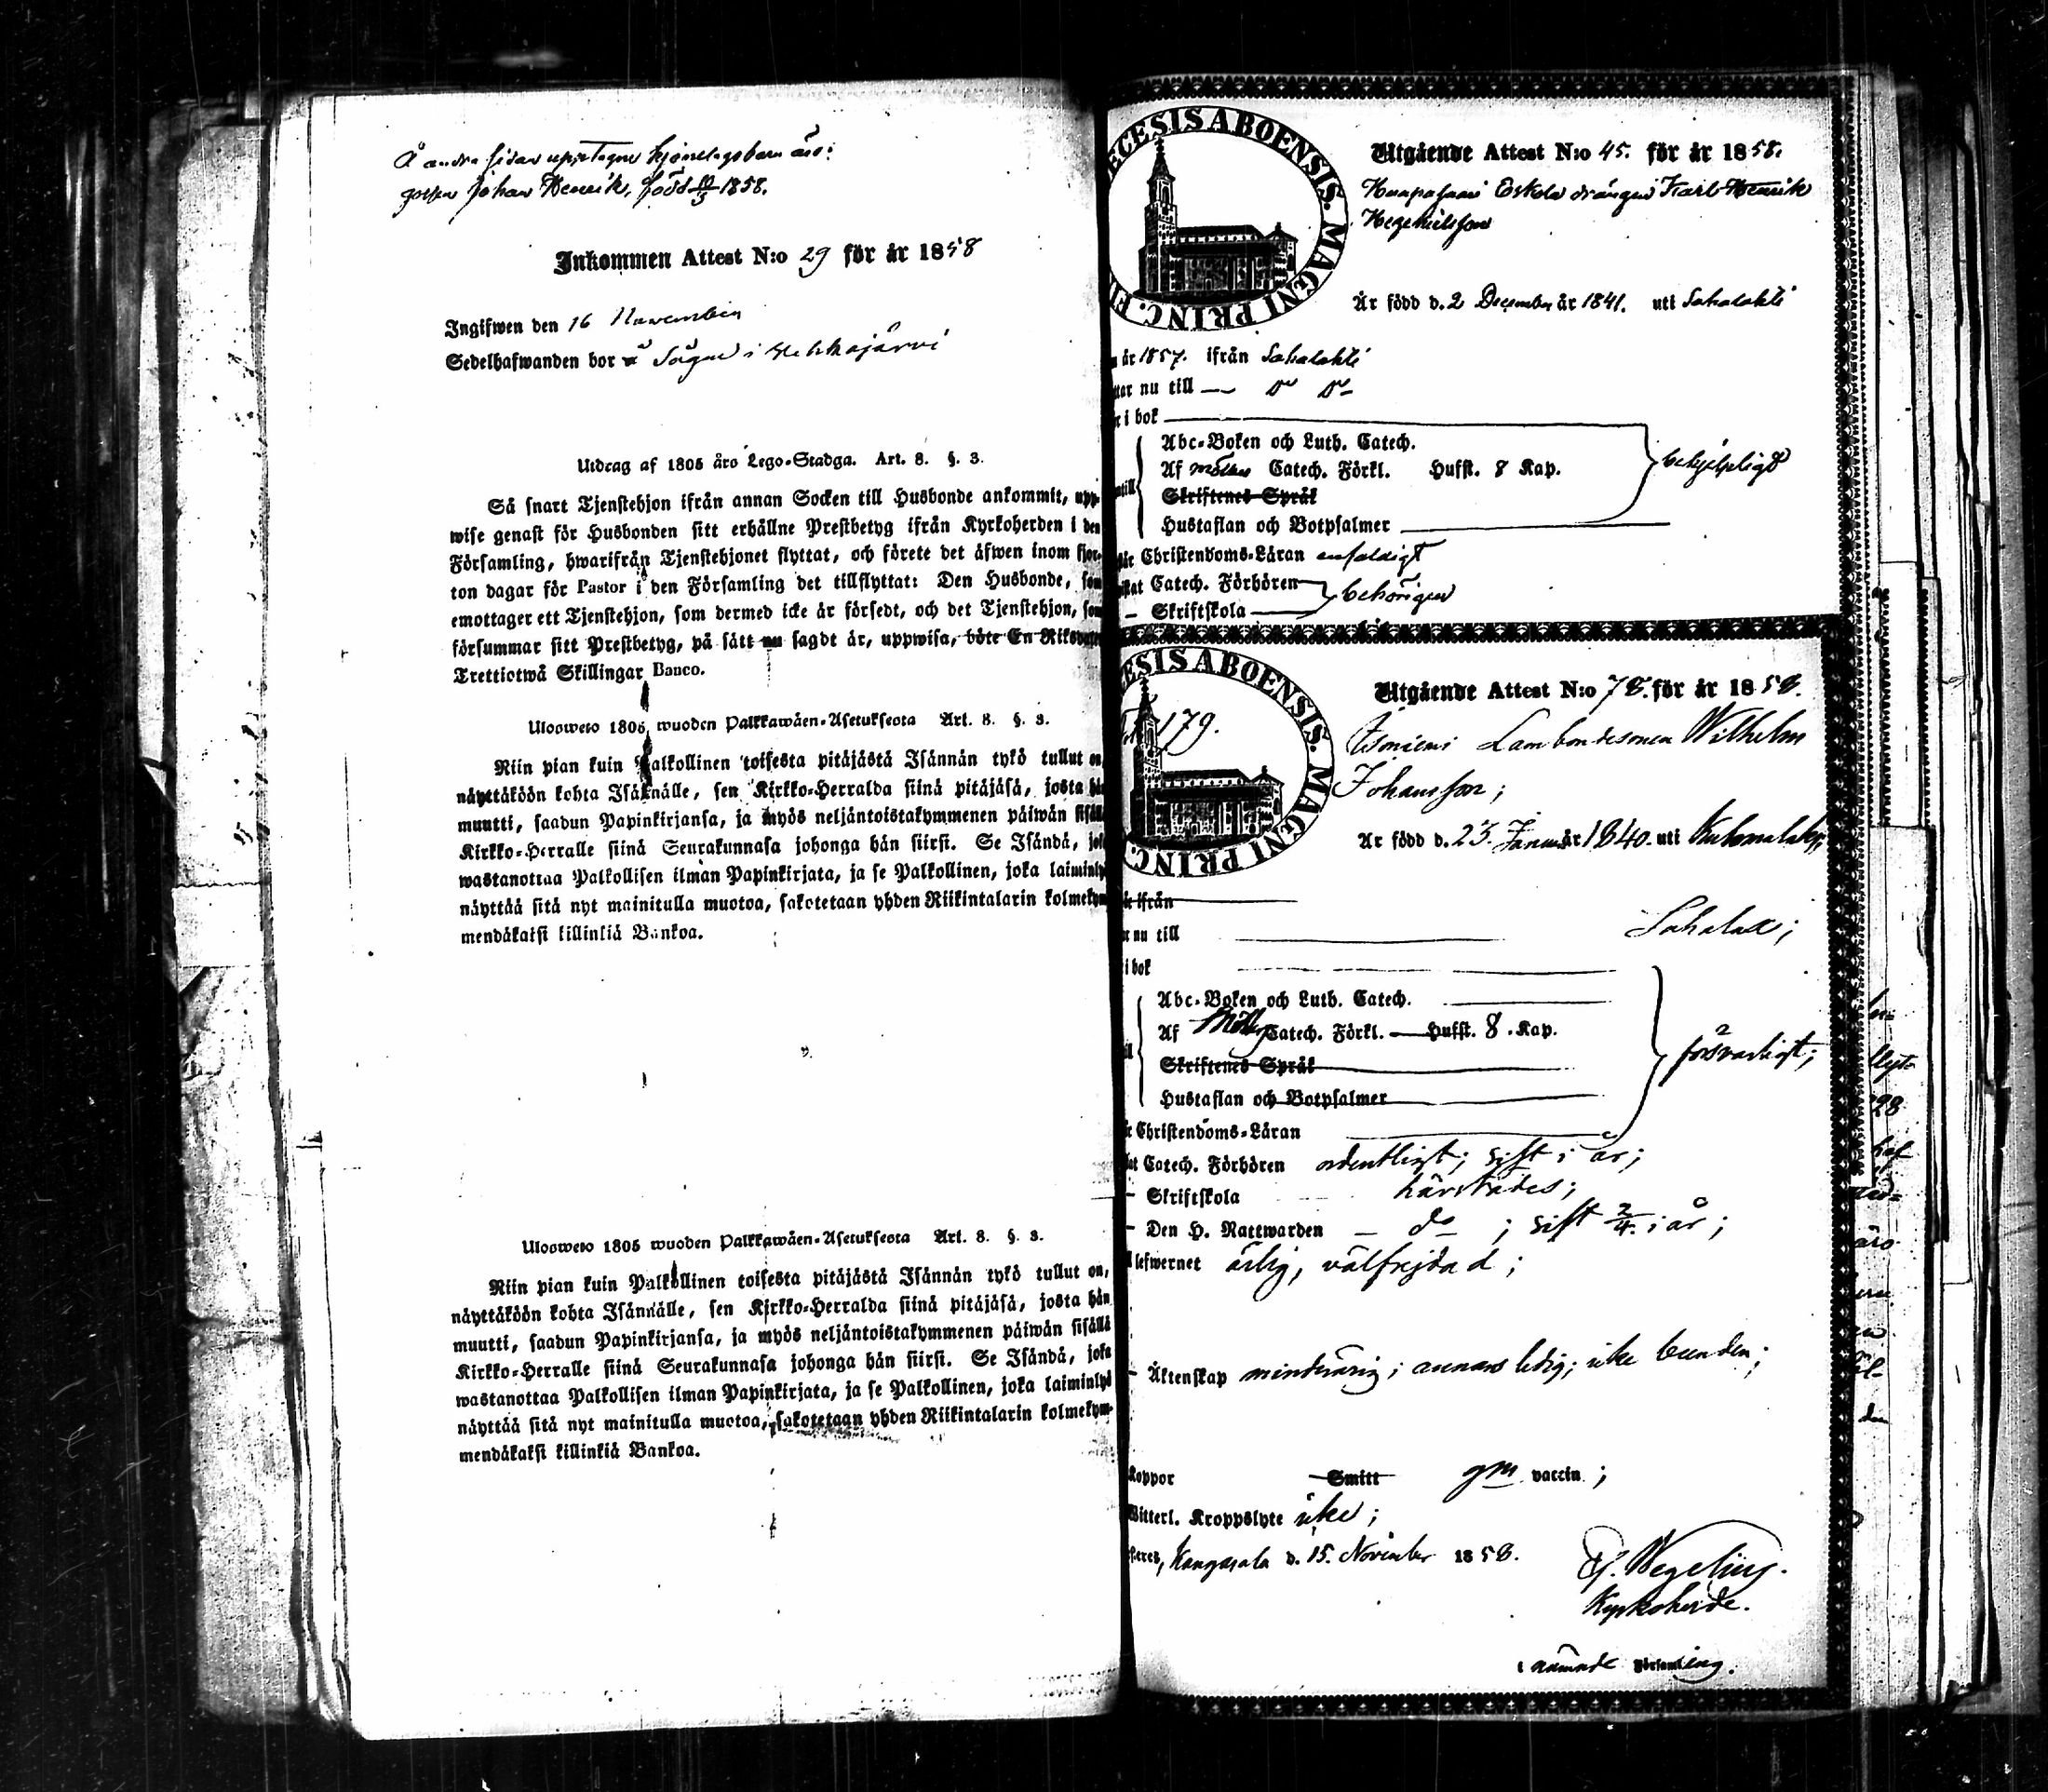 Å andra sidan upptagne hjonelagsbarn äro:
gossen Johan Henrik, född 10/5 1858.
Inkommen Attest N:o 29 för år 1858
Ingifwen den 16 November
Sedelhafwanden bor å Sågen i
Utdrag af 1805 års Lego-Stadga. Art. 8. §. 3.
Så snart Tjenstehjon ifrån annan Socken till Husbonde ankommit, upp-
wise genast för Husbonden sitt erhållne Prestbetyg ifrån Kyrkoherden i den
Församling, hwarifrån Tjenstehjonet flyttat, och förete det äfwen inom fjor-
ton dagar för Pastor i den Församling det tillflyttat: Den Husbonde, som
emottager ett Tjenstehjon, som dermed icke är försedt, och det Tjenstehjon, som
försummar sitt Prestbetyg, på sätt nu sagdt är, uppwisa, böte En Riksdaler
Trettiotwå Skillingar Banco.
Ulosweto 1805 wuoden Palkkawäen-Asetuksesta Art. 8. §. 3.
Niin pian kuin Palkollinen toisesta pitäjästä Isännän tykö tullut on,
näyttäköön kohta Isännälle, sen Kirkko-Herralda siinä pitäjäsä, josta hän
muutti, saadun Papinkirjansa, ja myös neljäntoistakymmenen päiwän sisällä
Kirkko-Herralle siinä Seurakunnasa johonga hän siirsi. Se Isändä, joka
wastanottaa Palkollisen ilman Papinkirjata, ja se Palkollinen, joka laiminlyö
näyttää sitä nyt mainitulla muotoa, sakotetaan yhden Riikintalarin kolmekym-
mendäkaksi killinkiä Bankoa.
Ulosweto 1805 wuoden Palkkawäen-Asetuksesta Art. 8. §. 3.
Niin pian kuin Palkollinen toisesta pitäjästä Isännän tykö tullut on,
näyttäköön kohta Isännälle, sen Kirkko-Herralda siinä pitäjäsä, josta hän
muutti, saadun Papinkirjansa, ja myös neljäntoistakymmenen päiwän sisällä
Kirkko-Herralle siinä Seurakunnasa johonga hän siirsi. Se Isändä, joka
wastanottaa Palkollisen ilman Papinkirjata, ja se Palkollinen, joka laiminlyö
näyttää sitä nyt mainitulla muotoa, sakotetaan yhden Riikintalarin kolmekym-
mendäkaksi killinkiä Bankoa.
ECESIS ABOENSIS. MAGNI PRINC. FI
Utgående Attest N:o 45. för år 1858.
Haapasaari Eskola drängen Karl Henrik
Hezekielsson
Är född d. 2 December år 1841. uti Sahalahti
år 1857. ifrån Sahalahti
nu till — Do Do
i bok
Abc-Boken och Luth. Catech.
Af Möllers Catech. Förkl. Husst. 8 Kap.
Skriftenes Språk
Hustaflan och Botpsalmer
behjelpligt
Christendoms-Läran enfaldigt
Catech. Förhören
— Skriftskola
behörigen
ECESIS ABOENSIS. MAGNI PRINC.
179.
Utgående Attest N:o 78. för år 1858.
Lambondesonen Wilhelm
Johansson;
Är född d. 23. Januar år 1840. uti Kuhmalahti,
ifrån
nu till Sahalax;
i bok
Abc-Boken och Luth. Catech.
Af Möllers Catech. Förkl. — Husst. 8. Kap.
Skriftenes Språk
Hustaflan och Botpsalmer
försvarligt;
Christendoms-Läran
Catech. Förhören ordentligt; sist i år;
— Skriftskola härstädes;
— Den H. Nattwarden — do ; sist 2/4. i år;
lefwernet ärlig, välfrejdad;
— Äktenskap minderårig; annars ledig; icke bunden;
Koppor Smitt gm vaccin;
Witterl. Kroppslyte icke;
Kangasala d. 15. November 1858.
Wegelius.
Kyrkoherde.
i nämnde Församling.